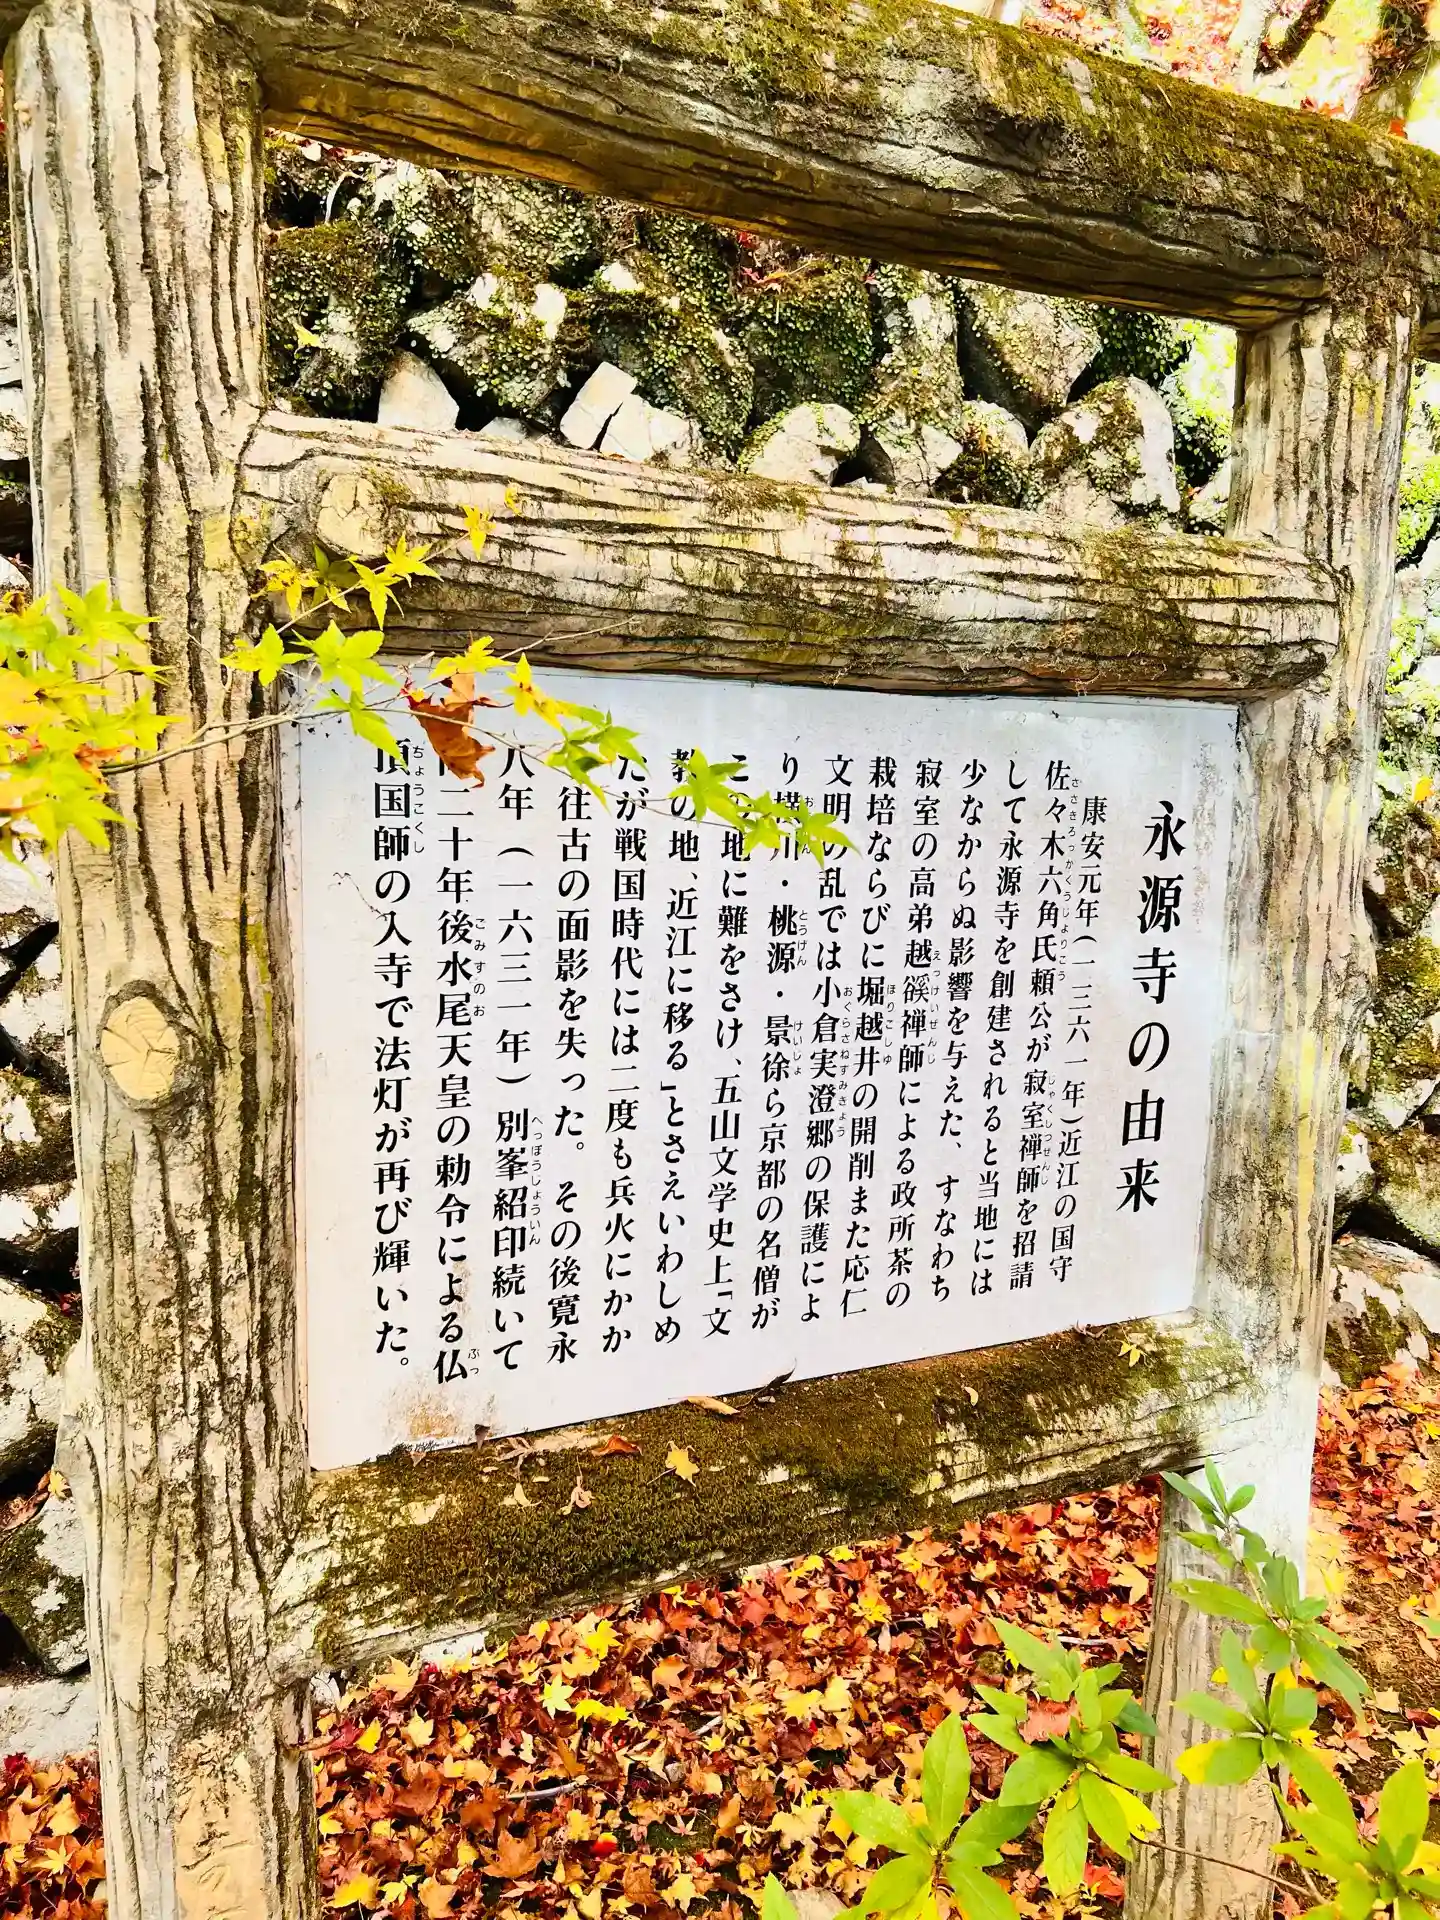 永源寺の由来
康安元年(一三六一年)近江の国守
佐々木六角氏頼公が寂室禅師を招請
して永源寺を創建されると当地には
少なからぬ影響を与えた、すなわち
寂室の高弟越谿禅師による政所茶の
栽培ならびに堀越井の開削また応仁
文明の乱では小倉実澄郷の保護によ
り横川・桃源・景徐ら京都の名僧が
この地に難をさけ、五山文学史上「文
教の地、近江に移る」とさえいわしめ
たが戦国時代には二度も兵火にかか
往古の面影を失った。その後寛永
八年(一六三一年)別峯紹印続いて
二十年後水尾天皇の勅令による仏
頂国師の入寺で法灯が再び輝いた。